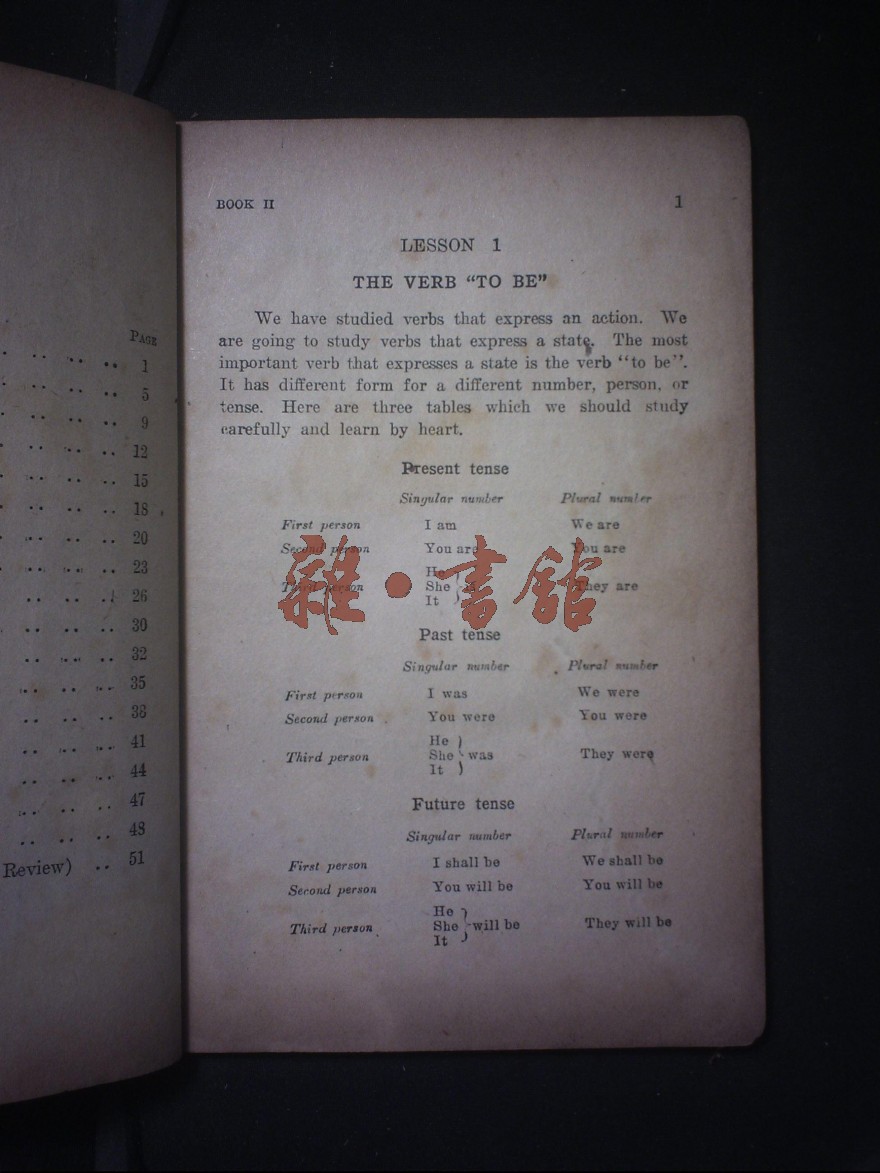 PAGE
1
5
9
12
15
18
20
23
26
30
32
35
38
41
44
47
48
Review) .. 51
BOOK II 1
LESSON 1
THE VERB “TO BE”
We have studied verbs that express an action. We
are going to study verbs that express a state. The most
important verb that expresses a state is the verb “to be”.
It has different form for a different number, person, or
tense. Here are three tables which we should study
carefully and learn by heart.
Present tense
Singular number Plural number
First person I am We are
Second person You are You are
He
Third person She } is They are
It
Past tense
Singular number Plural number
First person I was We were
Second person You were You were
He
Third person She } was They were
It
Future tense
Singular number Plural number
First person I shall be We shall be
Second person You will be You will be
He
Third person She } will be They will be
It
雜·書館